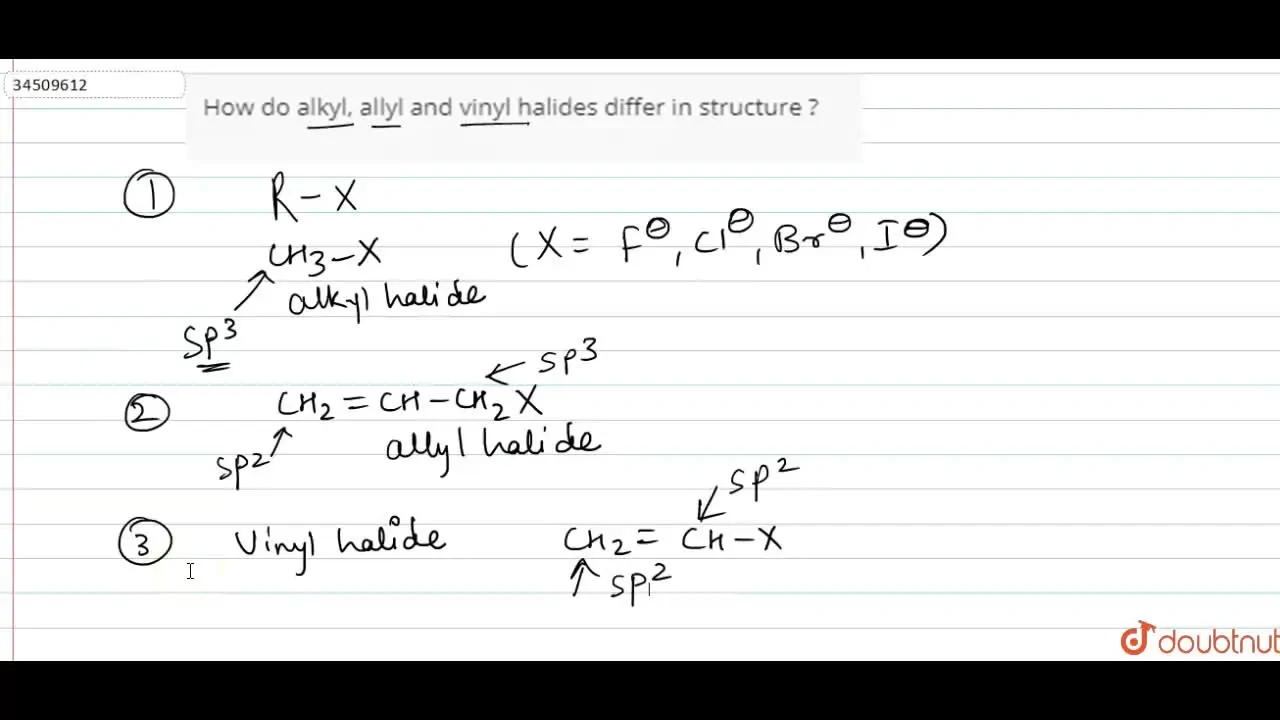 34509612
How do alkyl, allyl and vinyl halides differ in structure ?
1 R-X
CH3-X (X = F⊖, Cl⊖, Br⊖, I⊖)
alkyl halide
SP³
SP³
2 CH₂ = CH - CH₂ X
SP² allyl halide
SP²
3 Vinyl halide CH₂ = CH - X
SP²
doubtnut